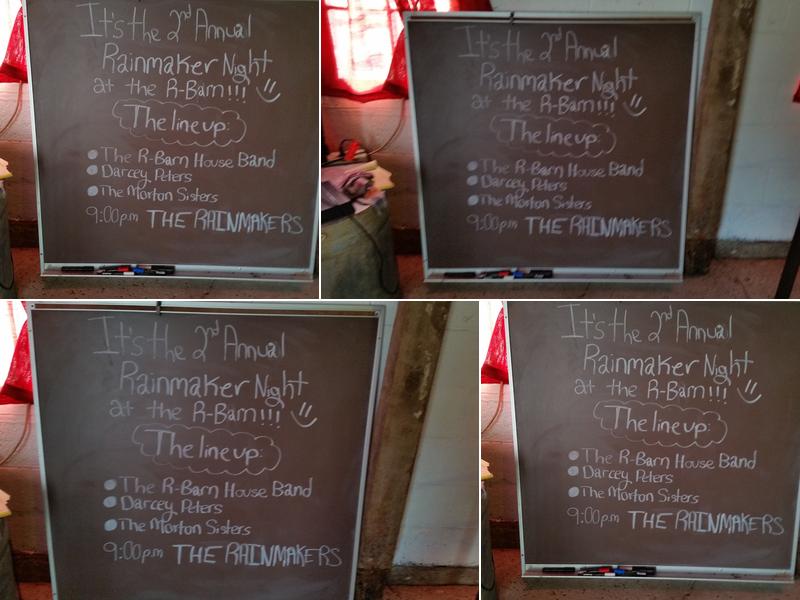 It's the 2nd Annual
Rainmaker Night
at the R-Barn!!!
The line up:
The R-Barn House Band
Darcey Peters
The Morton Sisters
9:00pm THE RAINMAKERS
It's the 2nd Annual
Rainmaker Night
at the R-Barn!!!
The line up:
The R-Barn House Band
Darcey Peters
The Morton Sisters
9:00pm THE RAINMAKERS
It's the 2nd Annual
Rainmaker Night
at the R-Barn!!!
The line up:
The R-Barn House Band
Darcey Peters
The Morton Sisters
9:00pm THE RAINMAKERS
It's the 2nd Annual
Rainmaker Night
at the R-Barn!!!
The line up:
The R-Barn House Band
Darcey Peters
The Morton Sisters
9:00pm THE RAINMAKERS